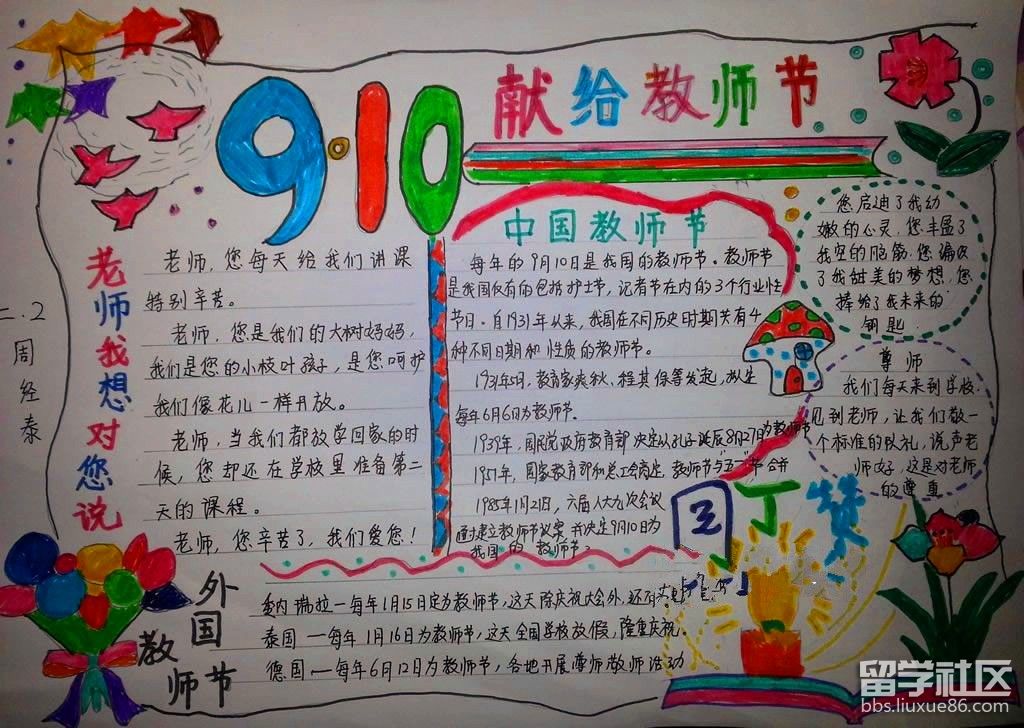 9·10
献给教师节
二.2
周经泰
老师我想对您说
老师,您每天给我们讲课
特别辛苦。
老师,您是我们的大树妈妈,
我们是您的小枝叶孩子,是您呵护
我们像花儿一样开放。
老师,当我们都放学回家的时
候,您却还在学校里准备第二
天的课程。
老师,您辛苦了,我们爱您!
中国教师节
每年的9月10日是我国的教师节。教师节
是我国仅有的包括护士节,记者节在内的3个行业性
节日。自1931年以来,我国在不同历史时期共有4
种不同日期和性质的教师节。
1931年5月,教育家 程其保等发起,拟定
每年6月6日为教师节。
1939年,国民党政府教育部决定从孔子诞辰8月27日为教师节
1951年,国家教育部和总工会商定,教师节与"五一"节合并
1985年1月21日,六届人大九次会议
通过建立教师节议案,并决定9月10日为
我国的教师节。
您启迪了我幼
嫩的心灵,您丰盈了
我空的脑筋,您 
了我甜美的梦想,您
捧给了我未来的
钥匙.
尊师
我们每天来到学校,
见到老师,让我们敬一
个标准的队礼,说声老
师好,这是对老师
的尊重
园丁赞
外国教师节
委内瑞拉一每年1月15日定为教师节,这天除庆祝大会外,还有
泰国一每年1月16日为教师节,这天全国学校放假,隆重庆祝.
德国一每年6月12日为教师节,各地开展尊师教师活动
留学社区
bbs.liuxue86.com